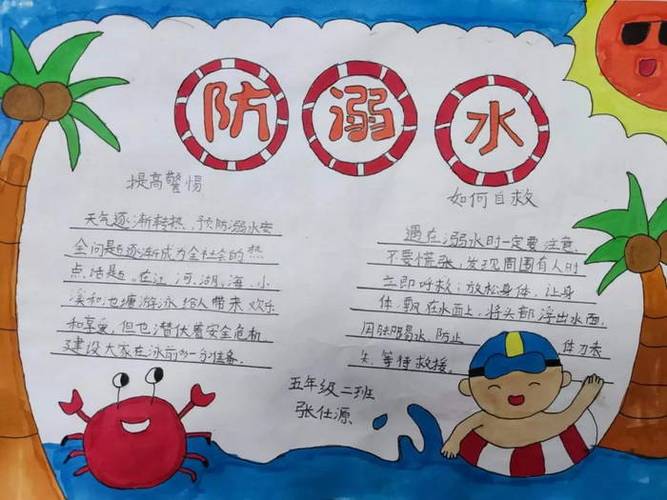 防溺水
提高警惕
天气逐渐转热,预防溺水安
全问题逐渐成为全社会的热
点话题。在江,河,湖,海,小
溪和池塘游泳给人带来欢乐
和享受,但也潜伏着安全危机
建设大家在泳前多一分准备.
如何自救
遇在溺水时一定要注意,
不要慌张,发现周围有人时
立即呼救;放松身体,让身
体飘在水面上,将头部浮出水面,
用脚踢水,防止 体力丧
失,等待救援。
五年级二班
张仕源